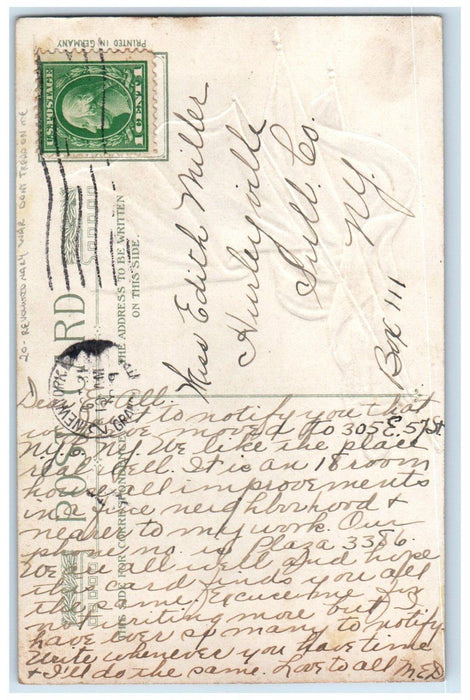 PRINTED IN GERMANY
U.S. POSTAGE
1 CENT 1
20- REVOLUTIONARY WAR DONT TREAD ON ME
POST CARD
THE ADDRESS TO BE WRITTEN
ON THIS SIDE.
THIS SIDE FOR CORRESPONDENCE
NEW YORK
Miss Edith Miller
Hurleyville
Sull. Co.
N.Y.
Box 111
Dear E. & All.
to notify you that
we moved to 305 E. 57 St
N.Y. We like the place
real well. It is an 18 room
house all improvements
in a nice neighborhood &
nearer to my work. Our
phone no is Plaza 3386.
We are all well and hope
this card finds you all
the same. Excuse me for
not writing more but I
have ever so many to notify.
Write whenever you have time
& I'll do the same. Love to all M.E.D